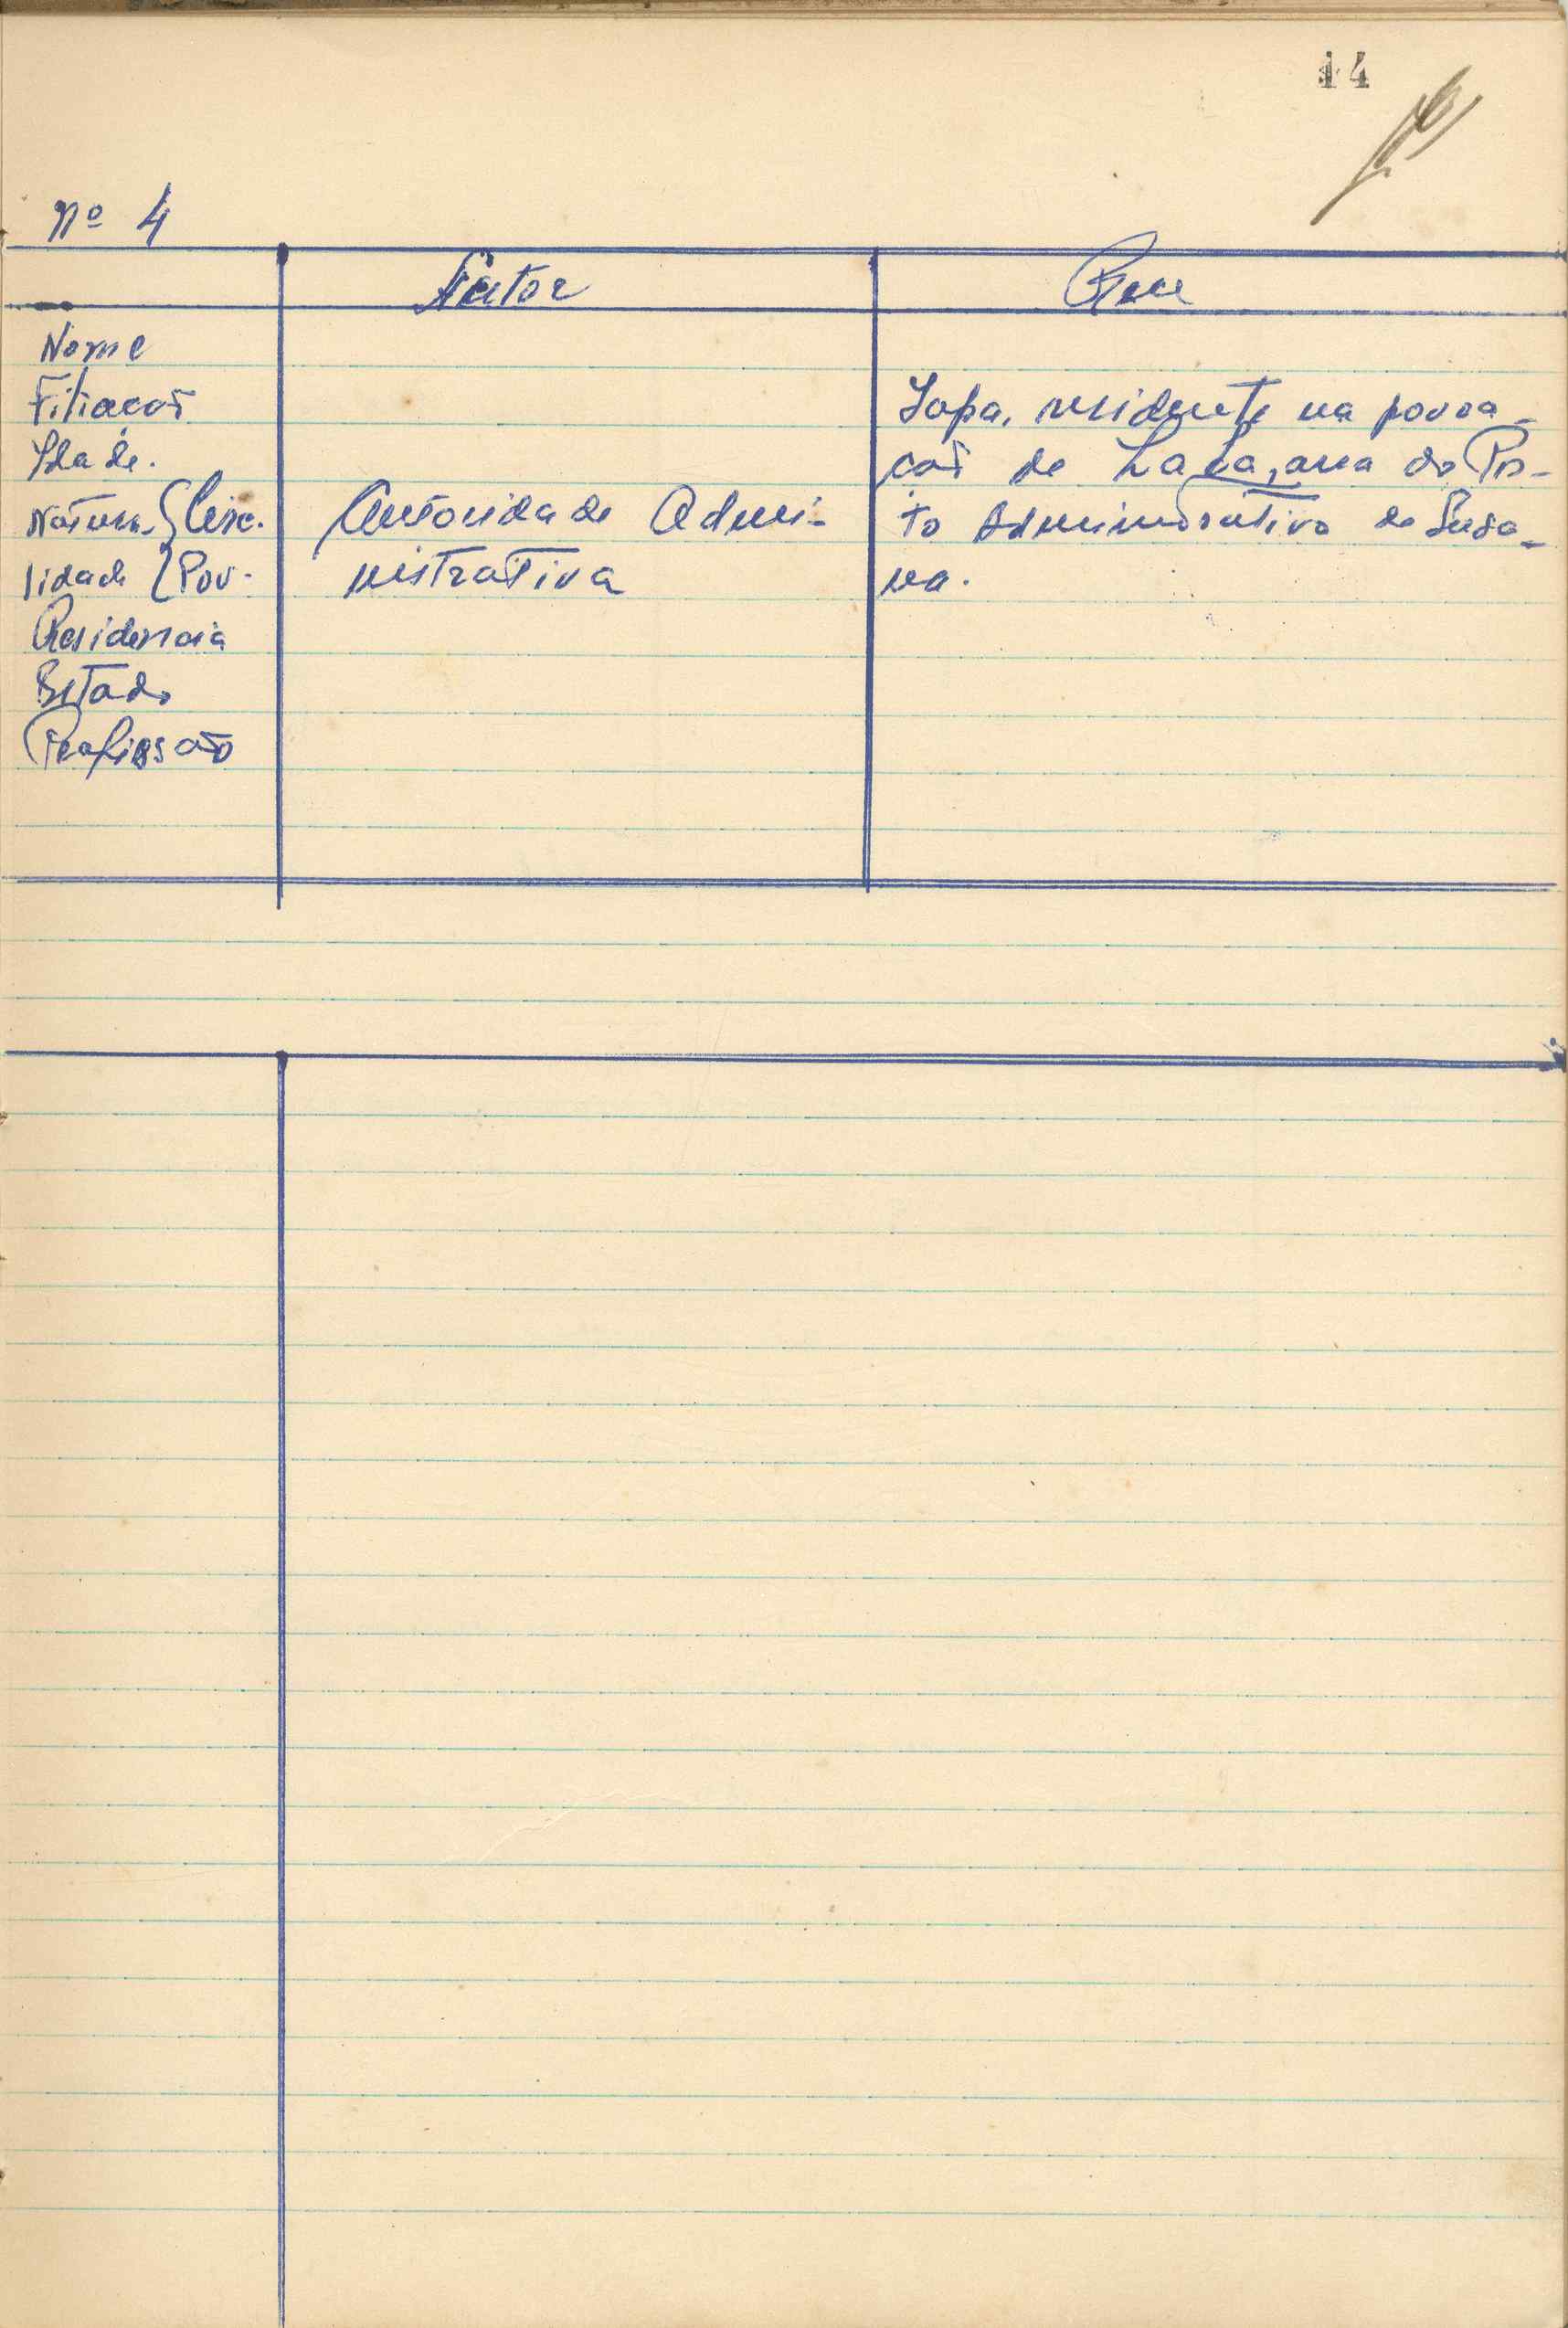 14
nº 4
Autor
Reu
Nome
Filiação
Idade.
Natura- { Circ.
lidade { Pov.
Residencia
Estado
Profissão
Autoridade Admi-
nistrativa
Sopa, residente na povoa-
ção de Lala, area do Pos-
to Administrativo de Susa-
na.